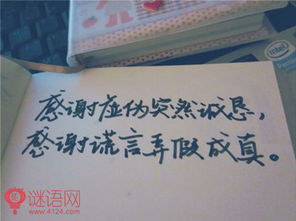 感谢虚伪突然诚恳，
感谢谎言弄假成真。
谜语网
www.4124.com